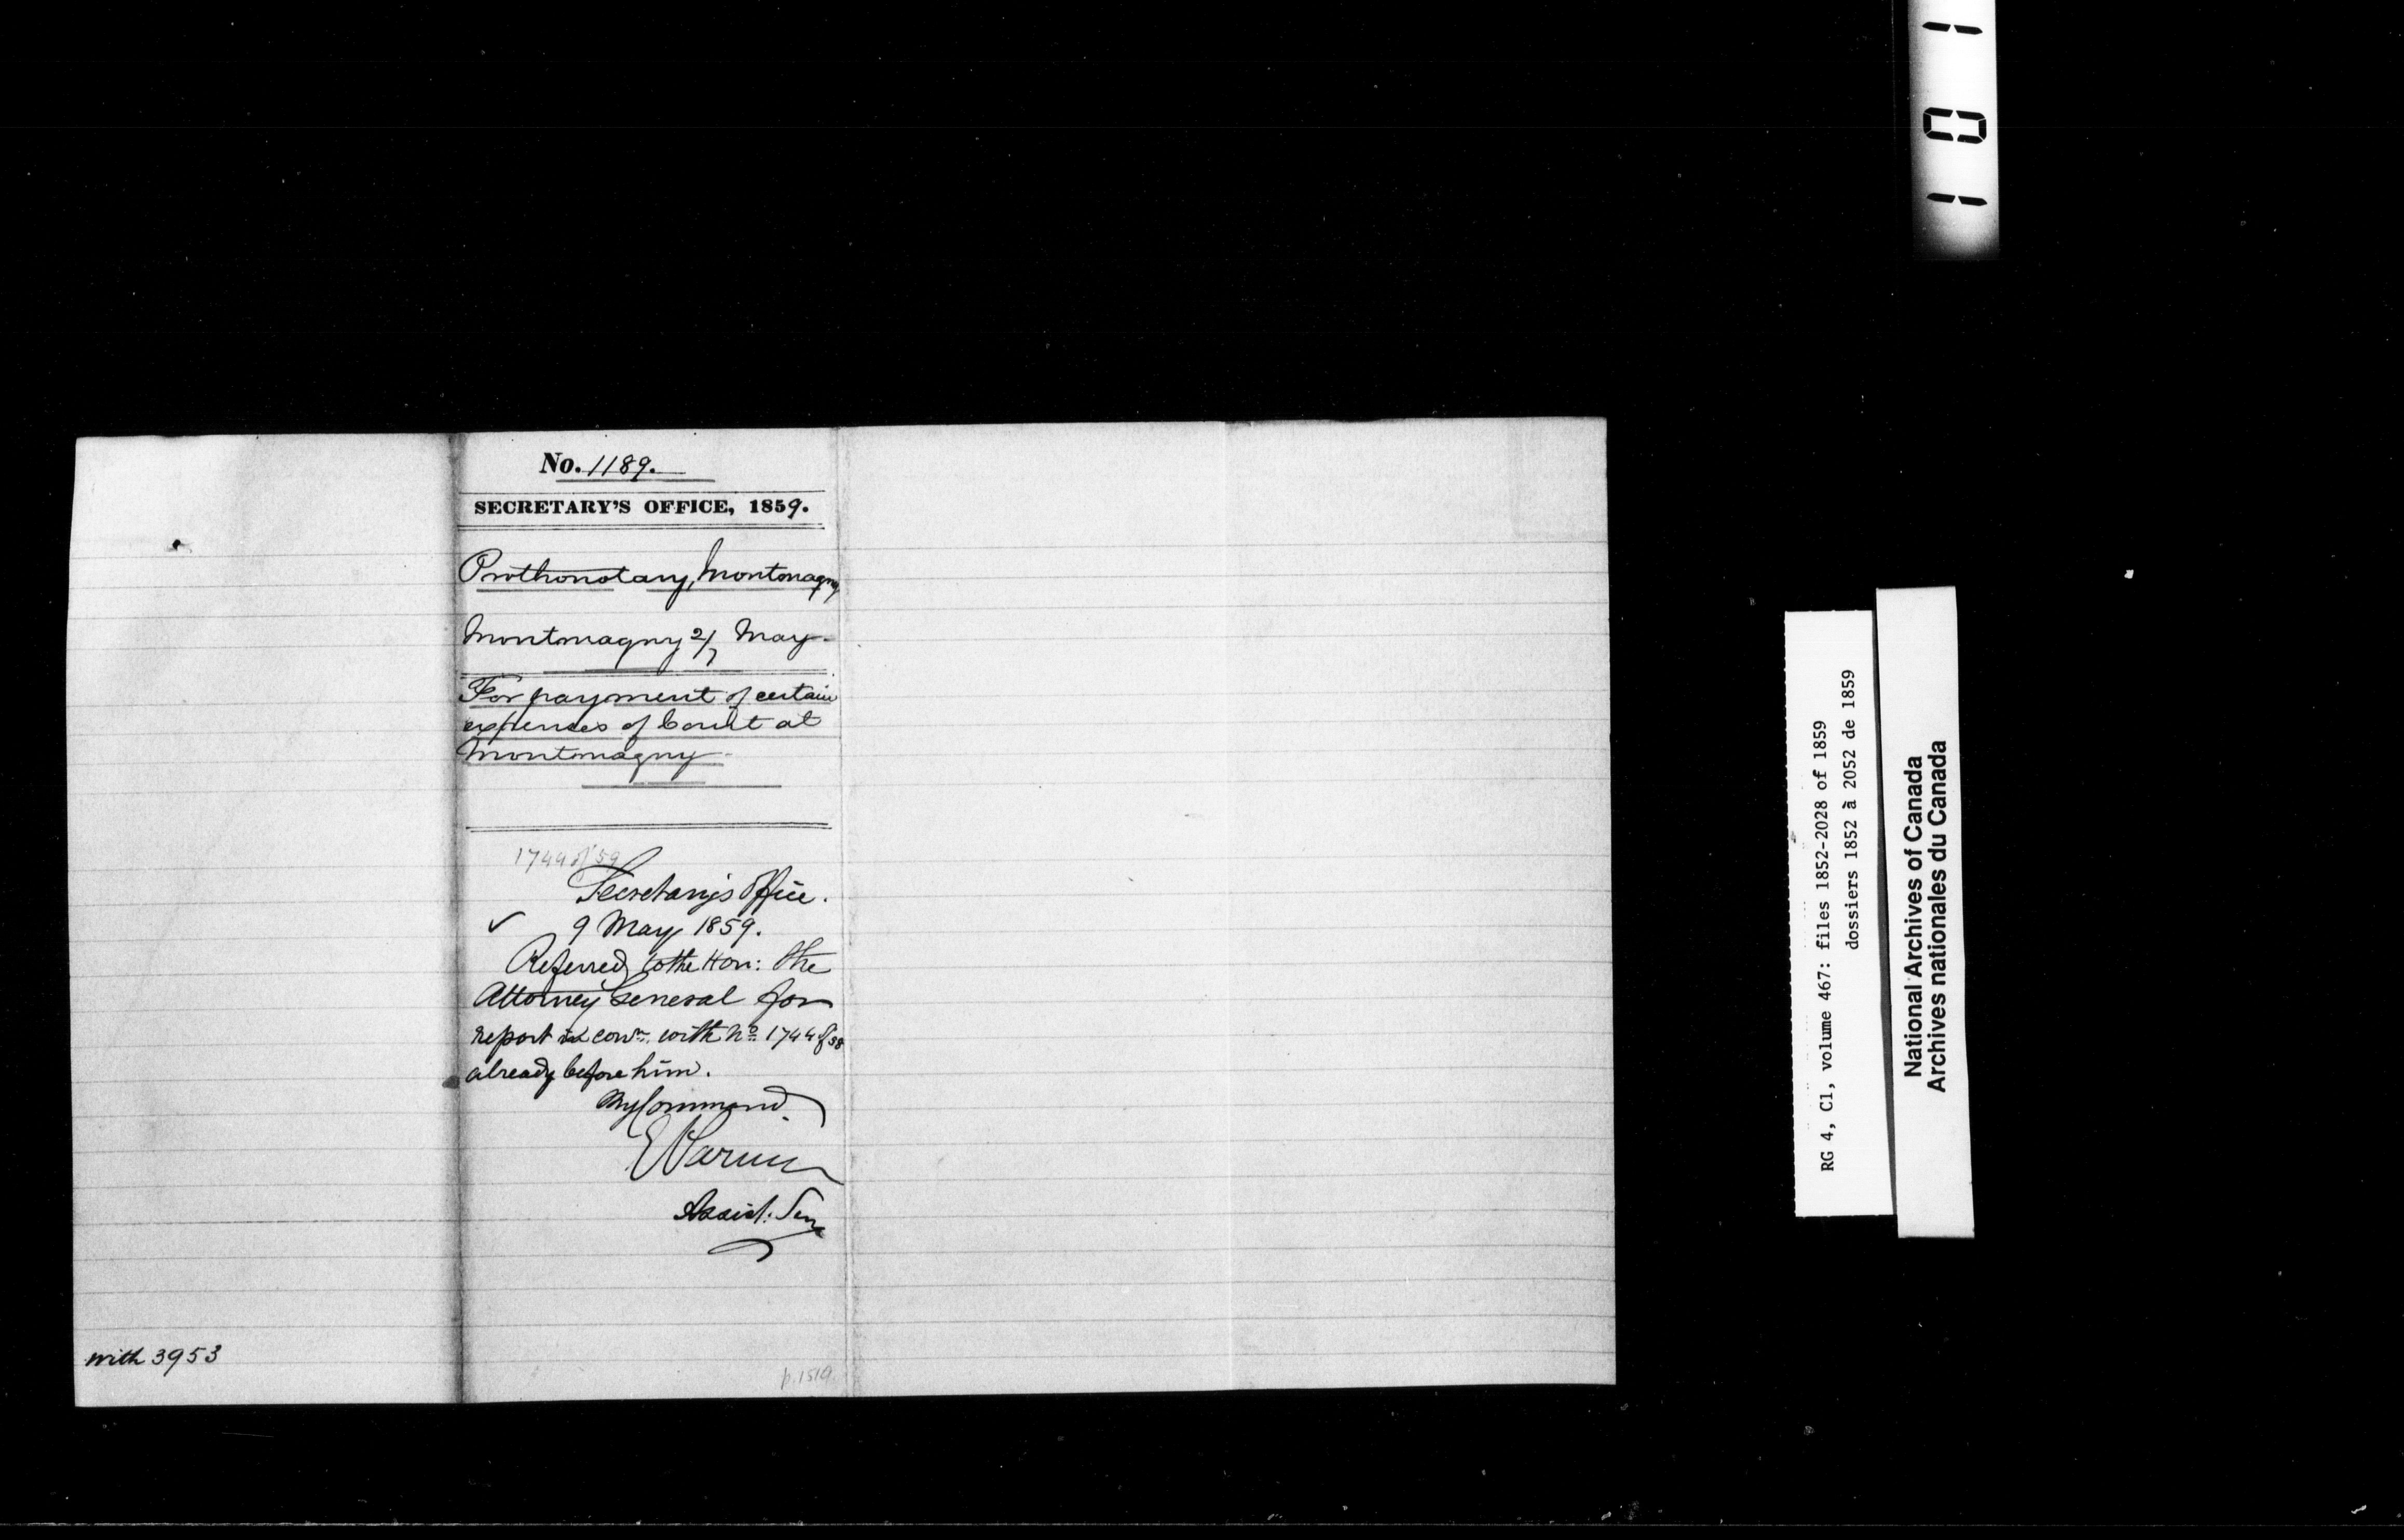 No. 1189.
SECRETARY'S OFFICE, 1859.
Prothonotary, Montmagny
Montmagny 2/7 May
For payment of certain
expenses of Court at
Montmagny
1744 of '59
Secretary's Office.
✓ 9 May 1859.
Referred to the Hon: the
Attorney General for
report in conn. with No 1744 of 58
already before him.
By Command.
E Parent
Assist: Secy
with 3953
p. 1519.
101
RG 4, C1, volume 467: files 1852-2028 of 1859
dossiers 1852 à 2052 de 1859
National Archives of Canada
Archives nationales du Canada